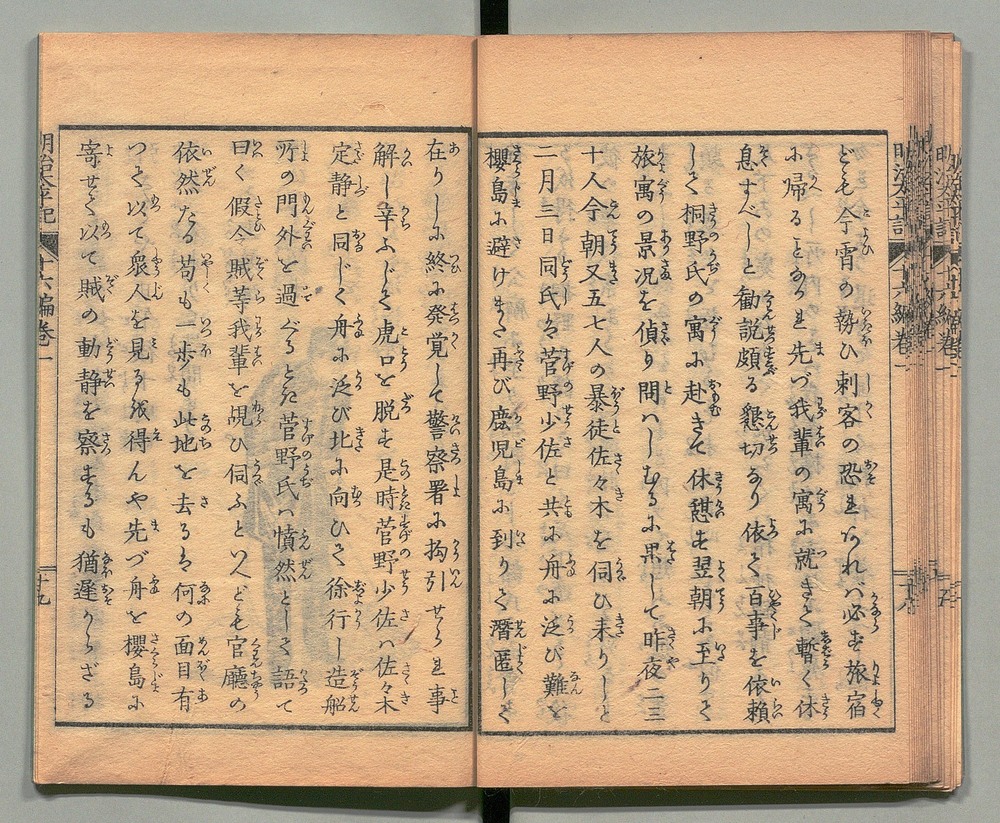 ども今宵の勢ひ刺客の恐れなれバ必ず旅宿
に帰ることなかれ先づ我輩の寓に就きて暫く休
息すべしと勧説頗る懇切なり依て百事を依頼
して桐野氏の寓に赴きて休憇す翌朝に至りて
旅寓の景况を偵り問ハしむるに果して昨夜二三
十人今朝又五七人の暴徒佐々木を伺ひ来りしと
二月三日同氏は菅野少佐と共に舟に泛び難を
櫻島に避けまた再び鹿児島に到りて潜匿して
明治太平記
十六編巻一
十八
在りしに終に発覚して警察署に拘引せられ事
解し辛ふじて虎口を脱す是時菅野少佐ハ佐々木
定静と同じく舟に泛び北に向ひて徐行し造船
所の門外を過ぐるとき菅野氏ハ憤然として語て
曰く假令賊等我輩を覘ひ伺ふといへども官廳の
依然たる苟も一歩も此地を去るは何の面目有
つて以て衆人を見るを得んや先づ舟を櫻島に
寄せて以て賊の動静を察するも猶遅からざる
明治太平記
十六編巻一
十九